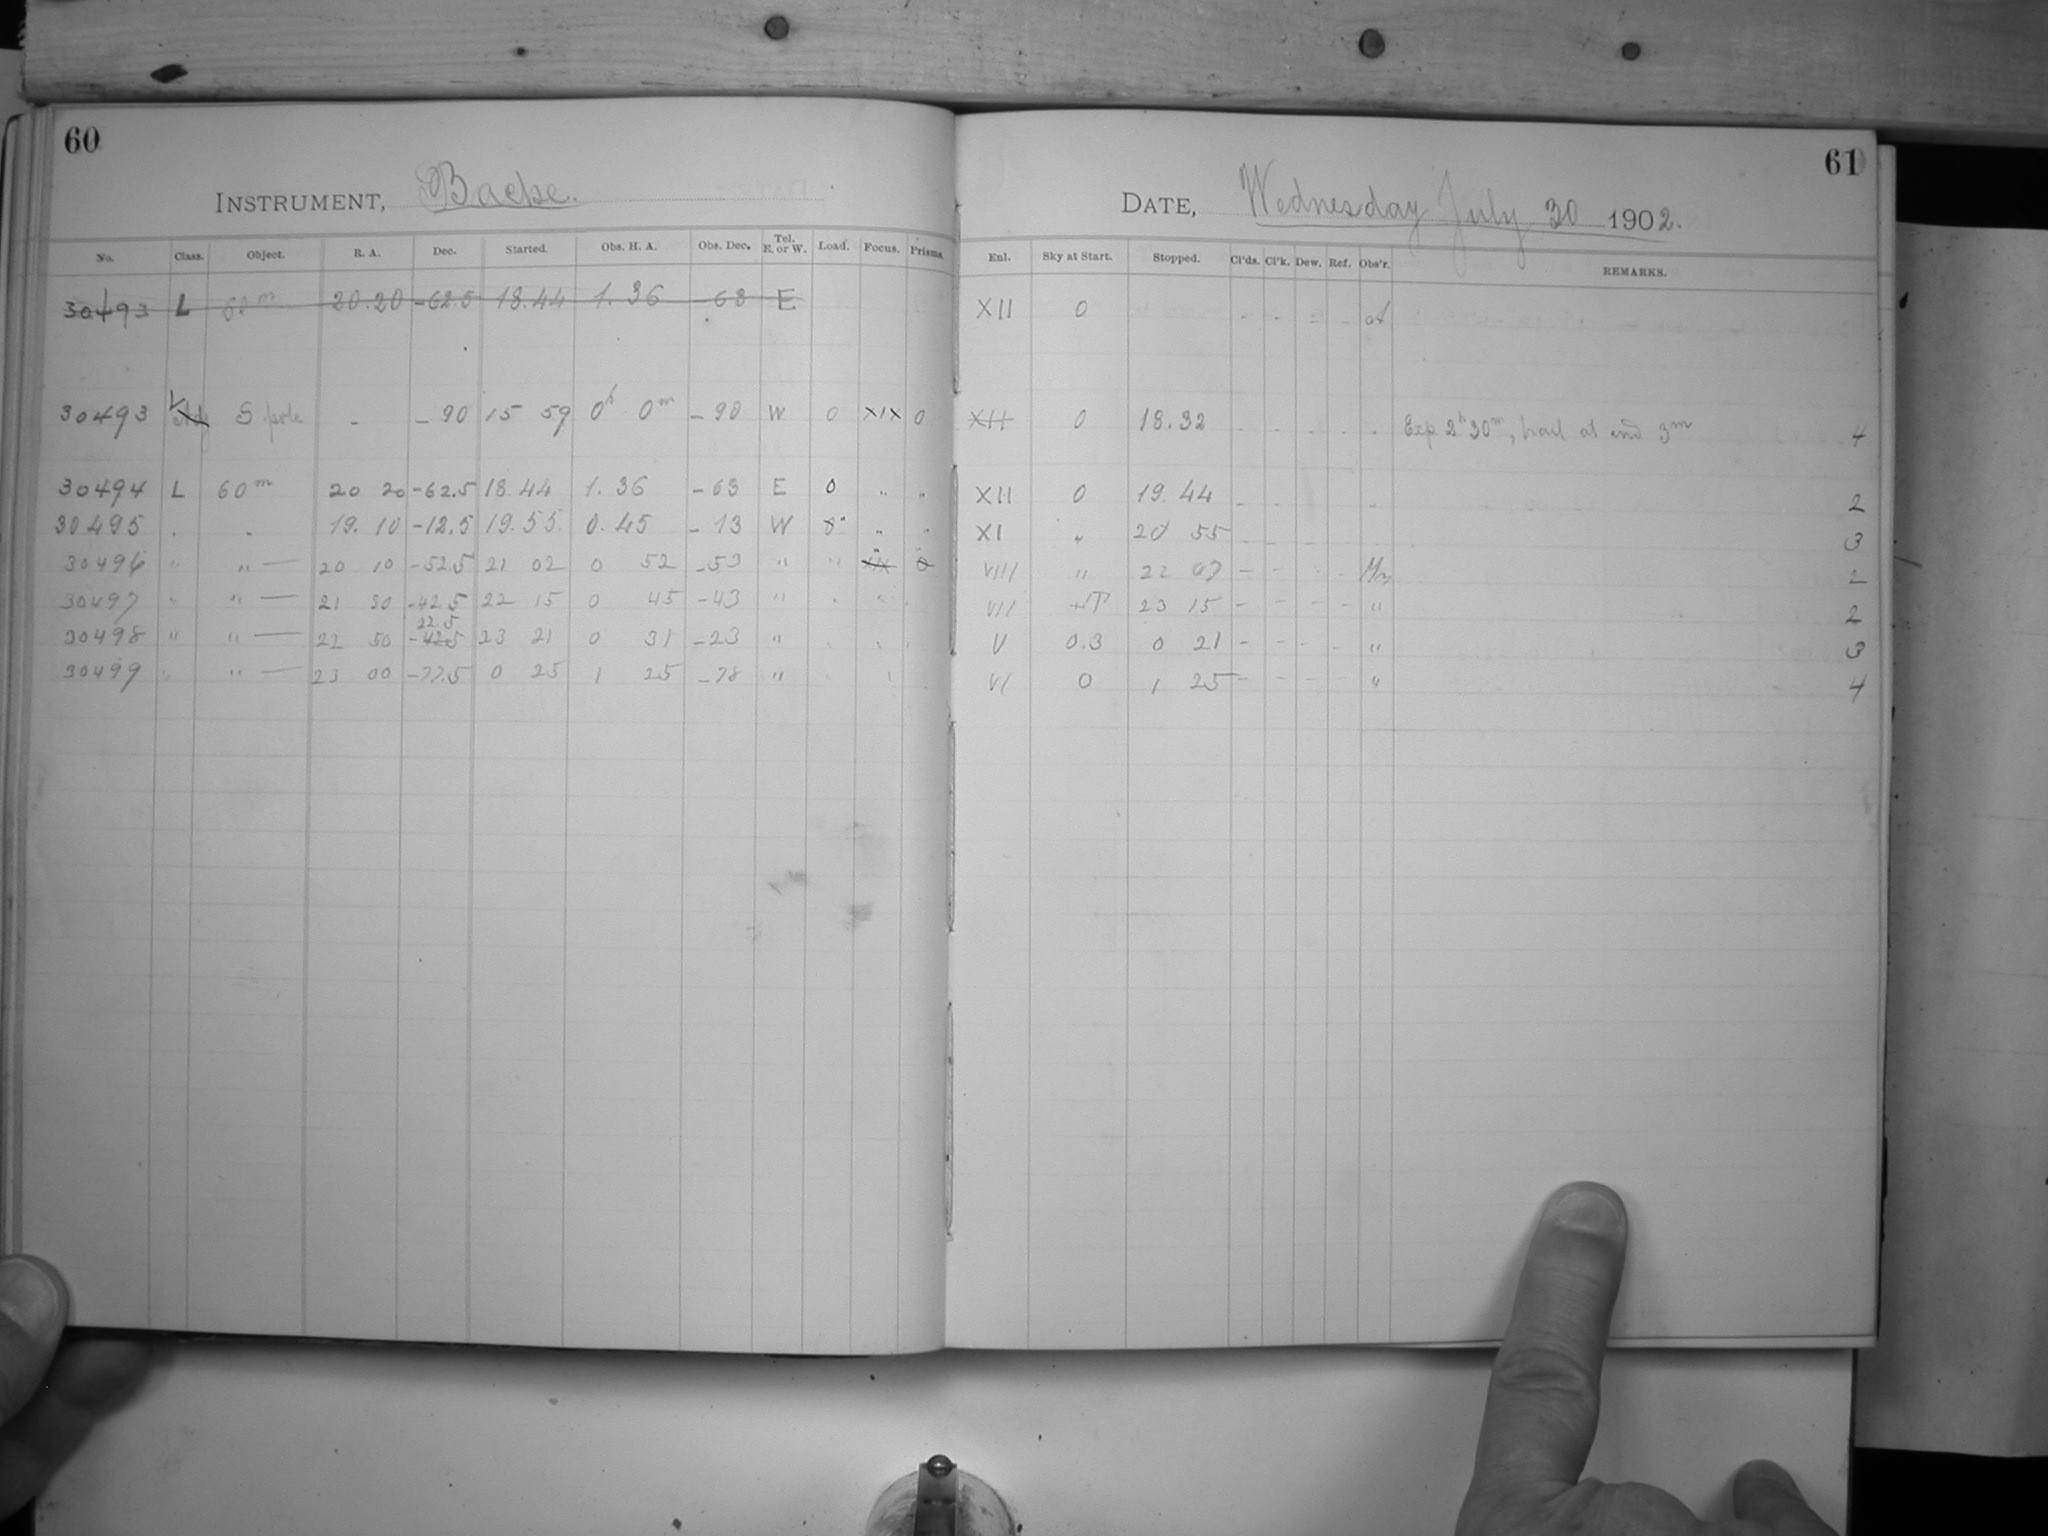 60
INSTRUMENT, Bache.
No. Class. Object. R. A. Dec. Started. Obs. H. A. Obs. Dec. Tel. E. or W. Load. Focus. Prisms.
30493 L 60m 20.20 -62.5 18.44 1.36 -63 E
30493 S pole - -90 15 59 0h 0m -90 W 0 XIX 0
30494 L 60m 20 20 -62.5 18.44 1.36 -63 E 0 " "
30495 . . 19.10 -12.5 19.55 0.45 -13 W " "
30496 " " — 20 10 -52.5 21 02 0 52 -53 " " XIX 0
30497 " " — 21 30 -42.5 22 15 0 45 -43 "
22.5
30498 " " — 22 50 -42.5 23 21 0 31 -23 "
30499 " " — 23 00 -77.5 0 25 1 25 -78 "
61
DATE, Wednesday July 30 1902.
Enl. Sky at Start. Stopped. Cl'ds. Cl'k. Dew. Ref. Obs'r. REMARKS.
XII 0 - - - -
XII 0 18.32 . . . . . Exp 2h 30m, trail at end 3m 4
XII 0 19.44 - - - - " 2
XI " 20 55 - - - - 3
VIII " 22 - - - - 2
VII 23 15 - - - - " 2
V 0.3 0 21 - - - - " 3
VI 0 1 25 - - - - " 4